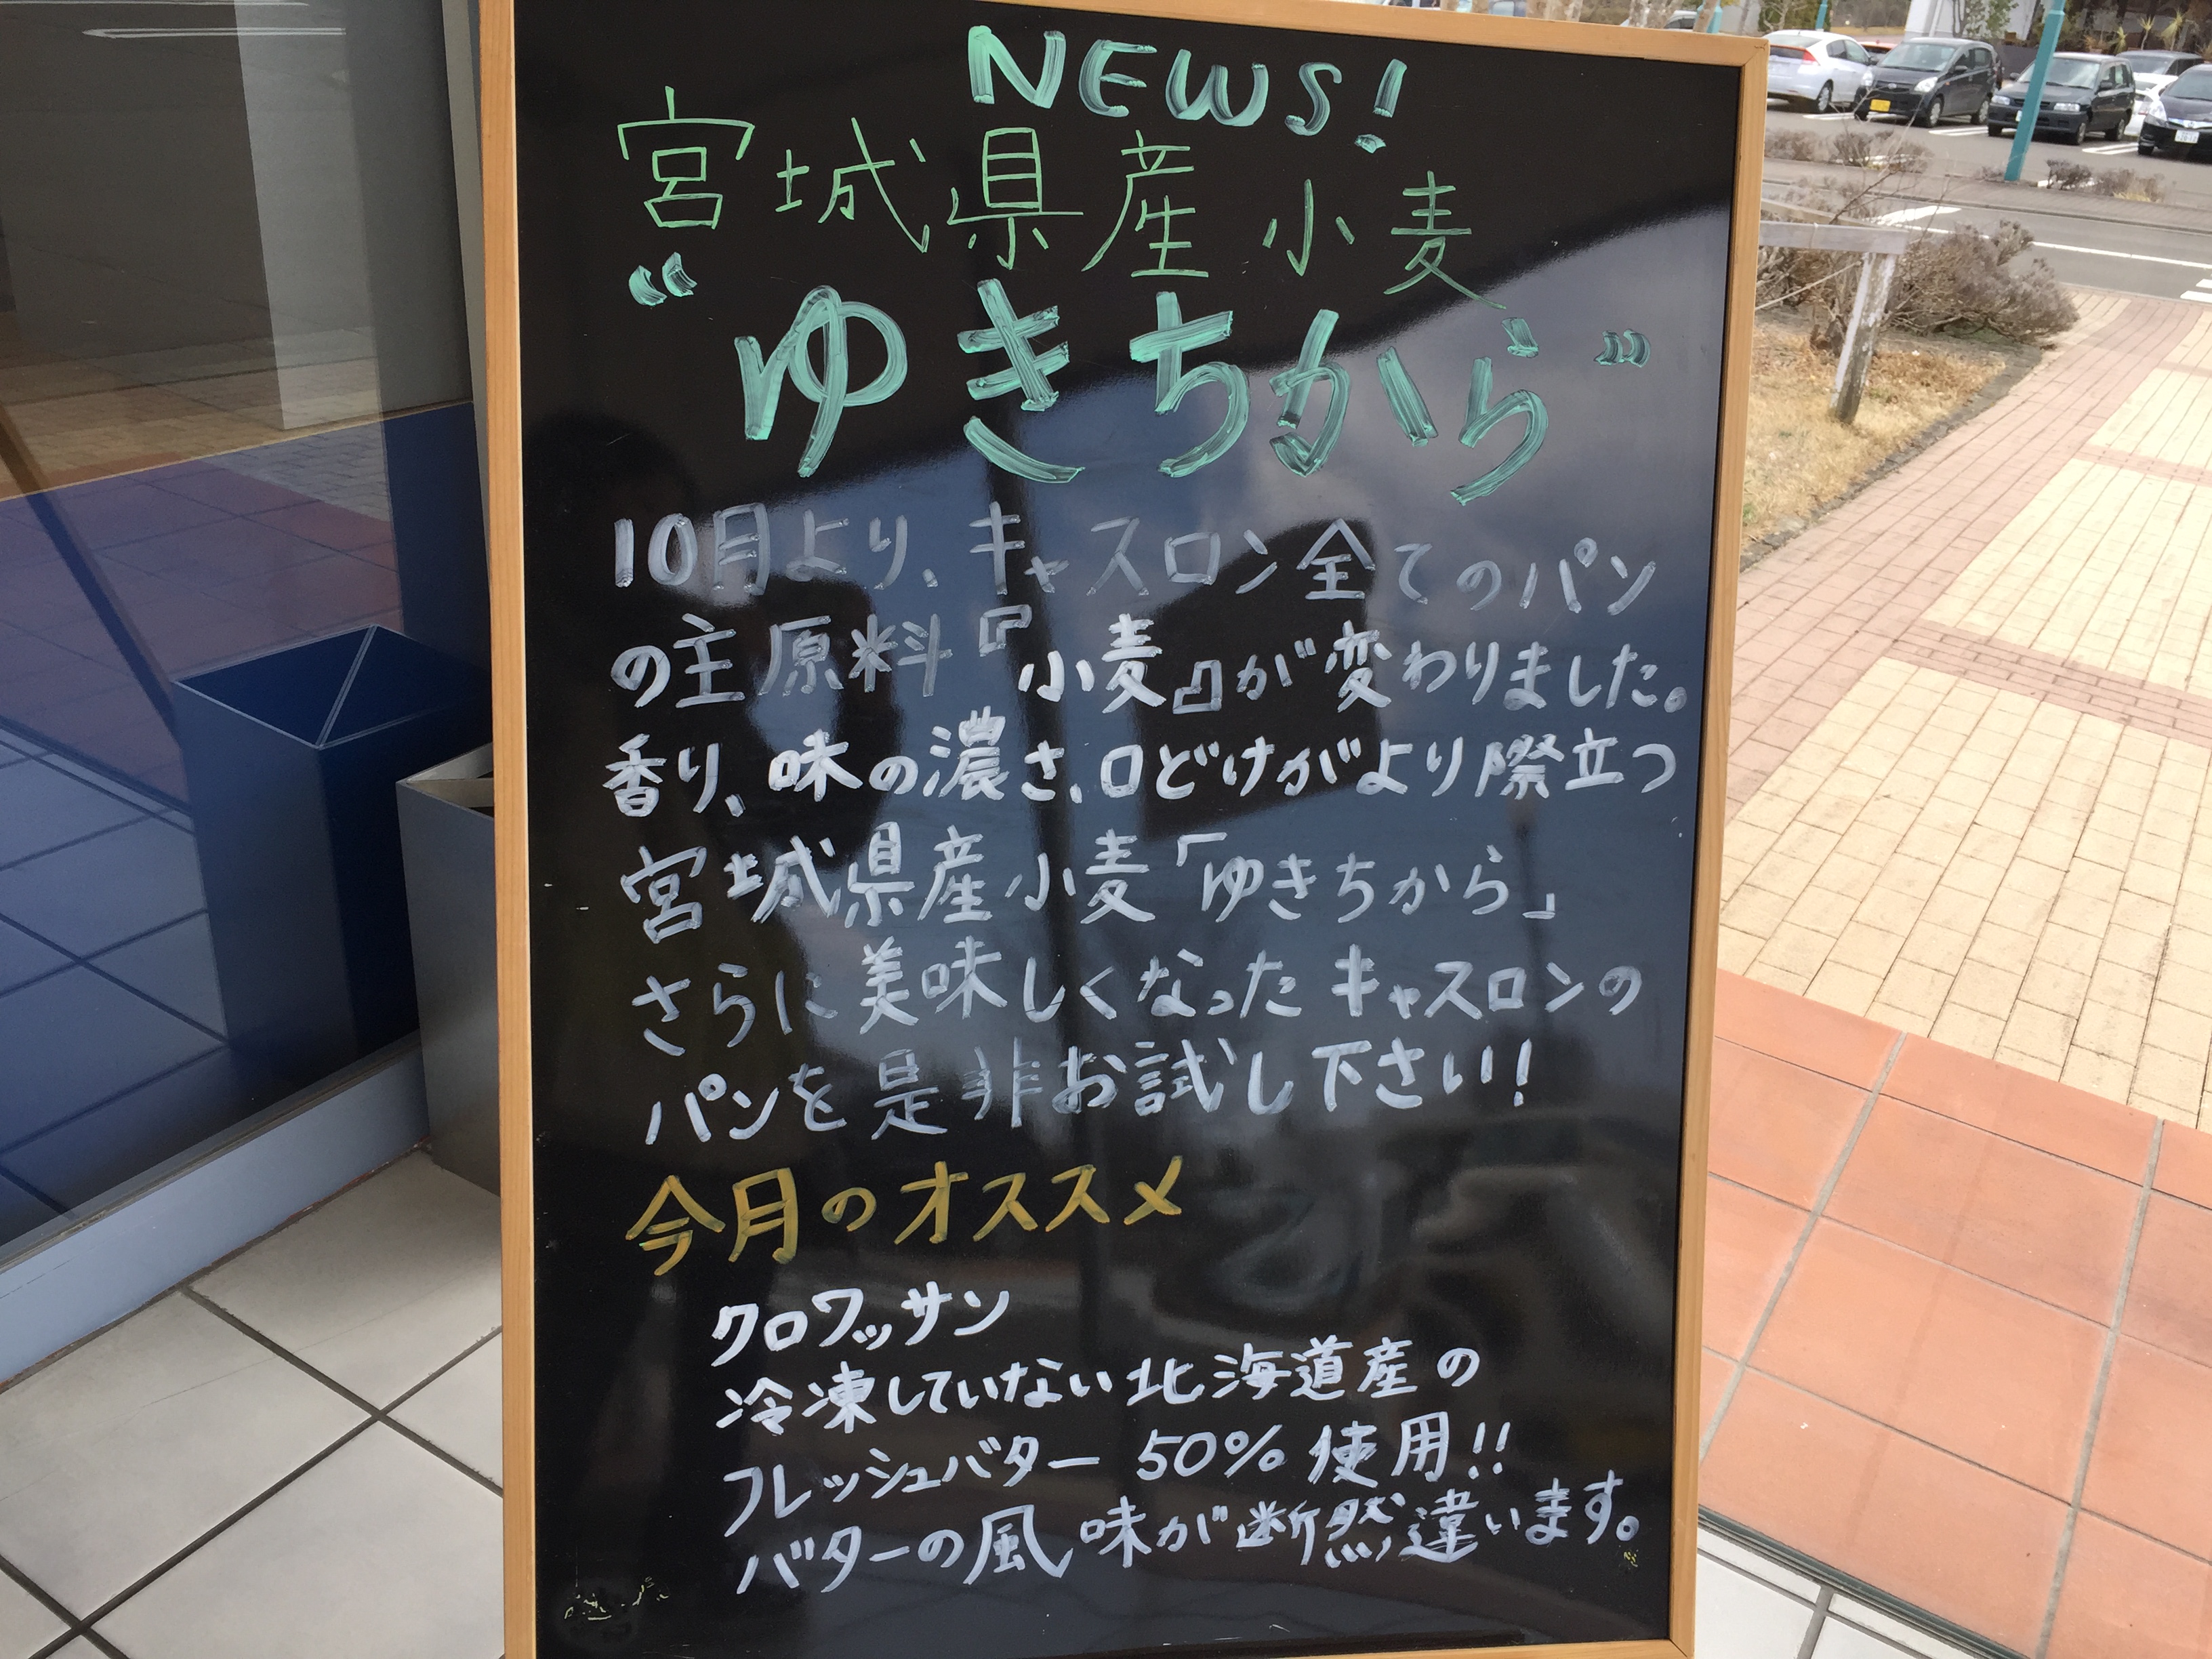 NEWS!
宮城県産小麦
“ゆきちから”
10月より、キャスロン全てのパン
の主原料『小麦』が変わりました。
香り、味の濃さ、口どけがより際立つ
宮城県産小麦「ゆきちから」
さらに美味しくなったキャスロンの
パンを是非お試し下さい!
今月のオススメ
クロワッサン
冷凍していない北海道産の
フレッシュバター 50%使用!!
バターの風味が断然違います。